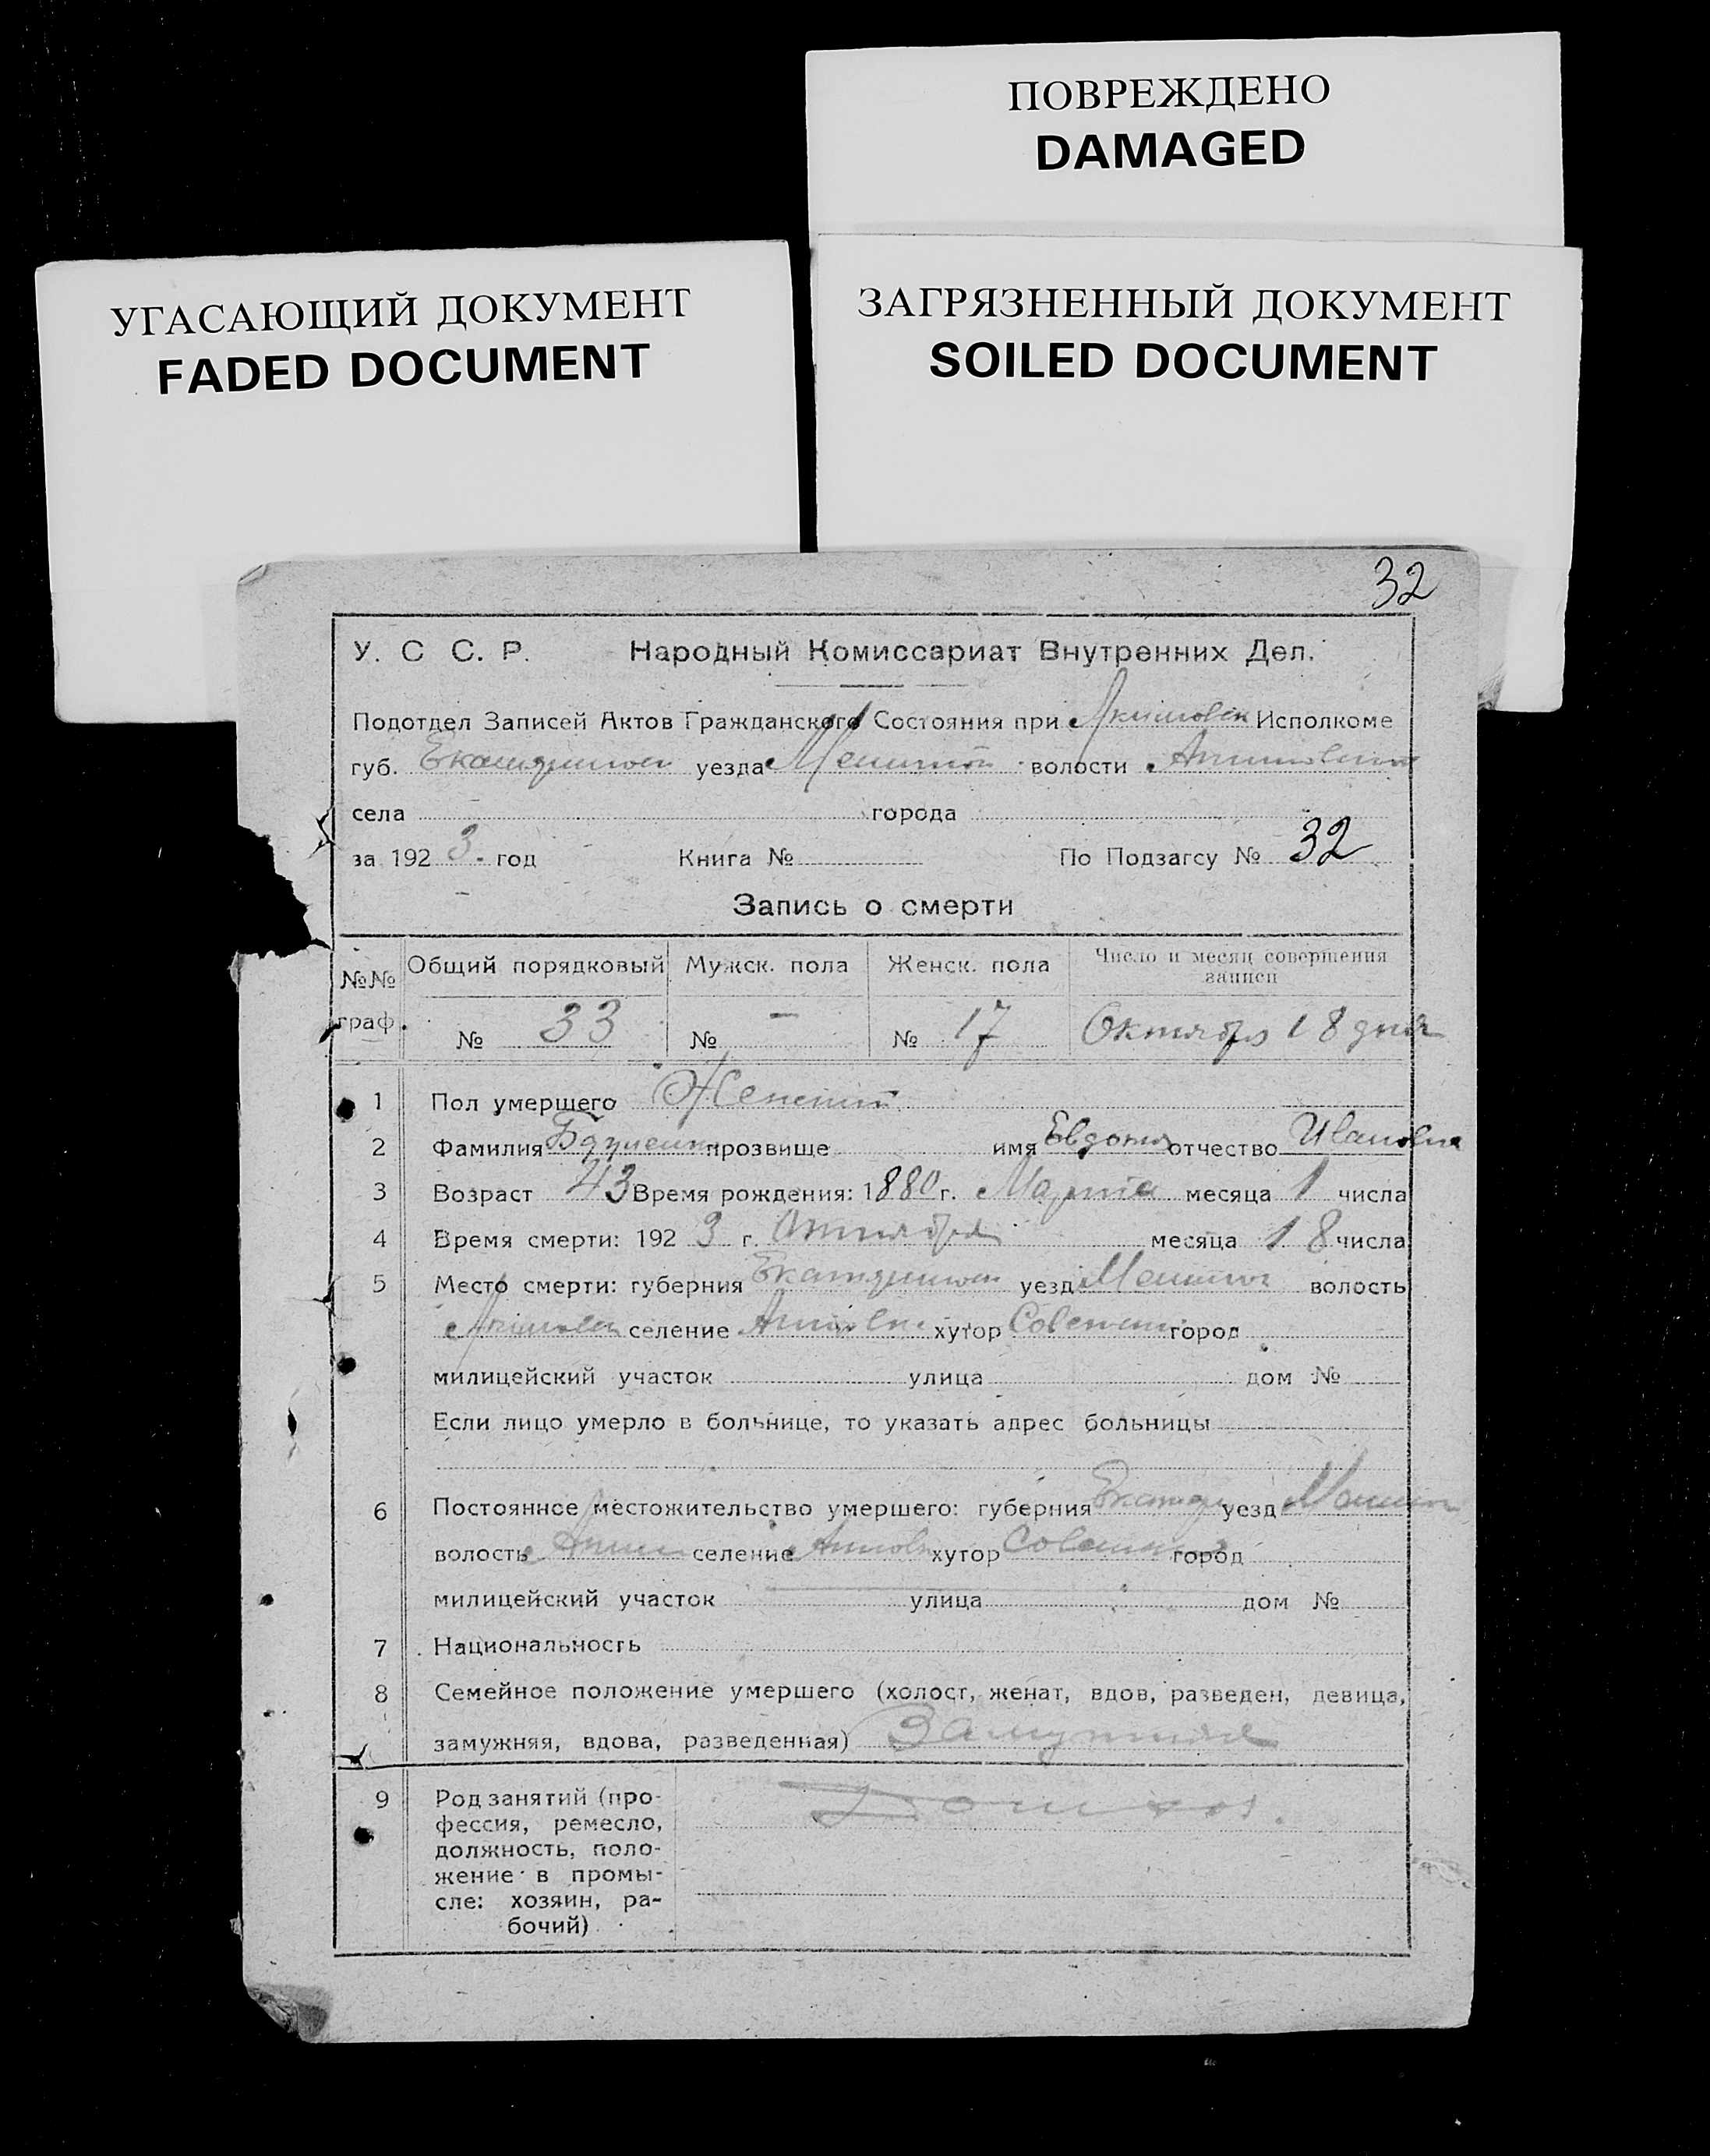 ПОВРЕЖДЕНО
DAMAGED
УГАСАЮЩИЙ ДОКУМЕНТ
FADED DOCUMENT
ЗАГРЯЗНЕННЫЙ ДОКУМЕНТ
SOILED DOCUMENT
32
У. С С. Р. Народный Комиссариат Внутренних Дел.
Подотдел Записей Актов Гражданского Состояния при Акимовск Исполкоме
губ. уезда волости
села города
за 192 3 год Книга № По Подзагсу № 32
Запись о смерти
№№ граф. Общий порядковый Мужск. пола Женск. пола Число и месяц совершения записи
№ 33 № — № 17 Октября 18 дня
1 Пол умершего Женский
2 Фамилия прозвище имя Евдокия отчество Ивановна
3 Возраст 43 Время рождения: 1880 г. Марта месяца 1 числа
4 Время смерти: 192 3 г. Октября месяца 18 числа
5 Место смерти: губерния уезд волость
селение хутор город
милицейский участок улица дом №
Если лицо умерло в больнице, то указать адрес больницы
6 Постоянное местожительство умершего: губерния уезд
волость селение хутор город
милицейский участок улица дом №
7 Национальность
8 Семейное положение умершего (холост, женат, вдов, разведен, девица,
замужняя, вдова, разведенная) Замужняя
9 Род занятий (про-
фессия, ремесло,
должность, поло-
жение в промы-
сле: хозяин, ра-
бочий)